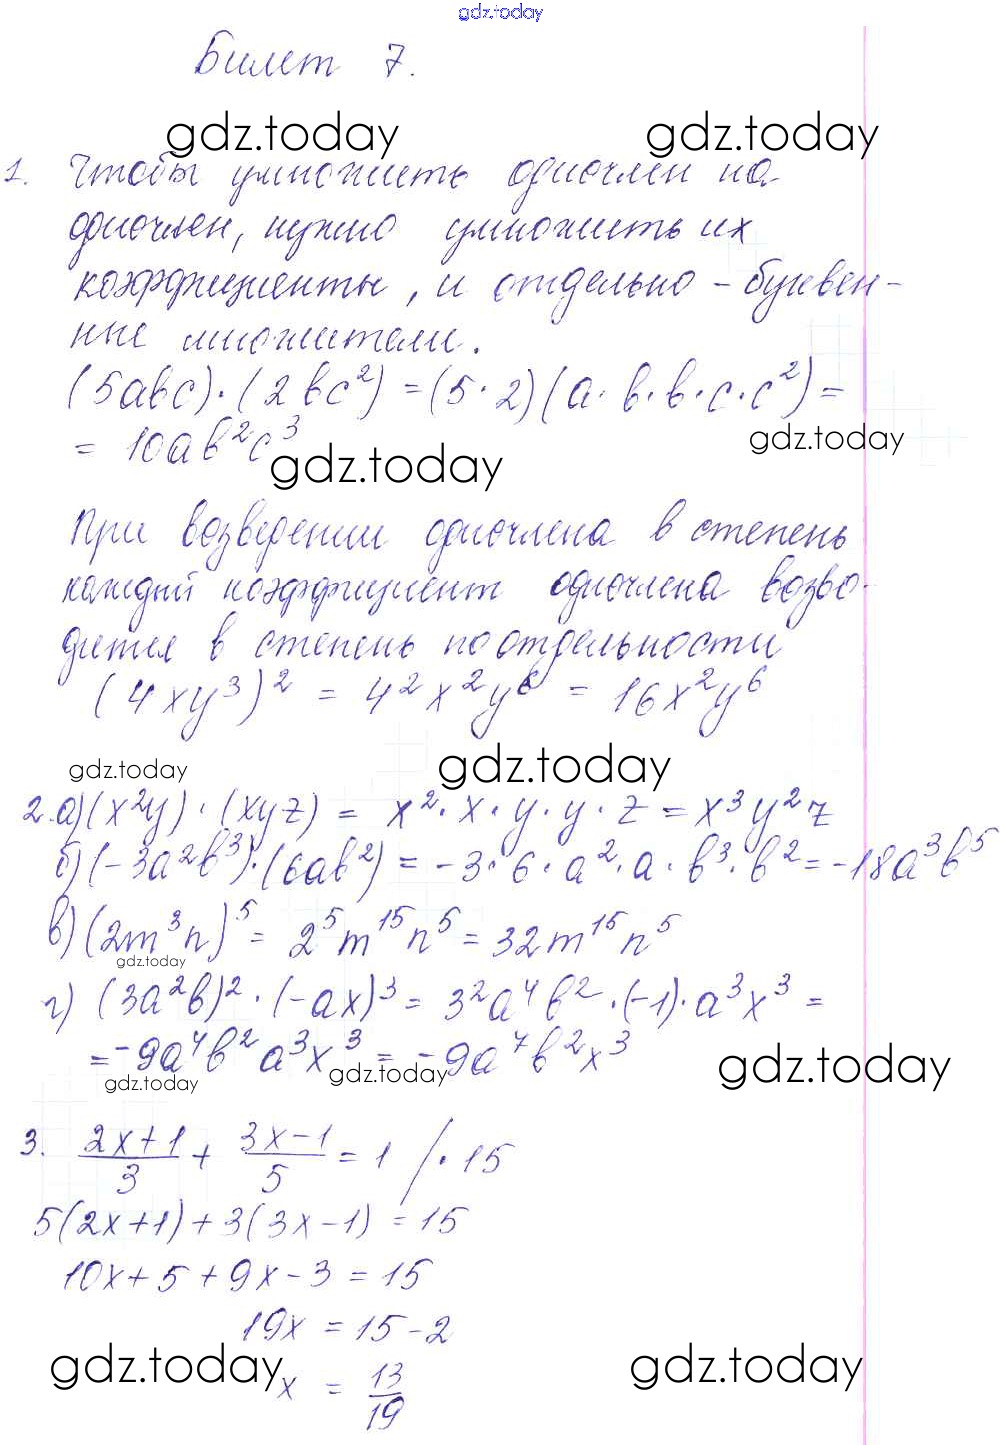 gdz.today
Билет 7.
gdz.today gdz.today
1. Чтобы умножить одночлен на
одночлен, нужно умножить их
коэффициенты, и отдельно - буквен-
ные множители.
(5abc)·(2bc²) = (5·2)(a·b·b·c·c²) =
= 10ab²c³
gdz.today gdz.today
При возведении одночлена в степень
каждый коэффициент одночлена возво-
дится в степень по отдельности
(4xy³)² = 4²x²y⁶ = 16x²y⁶
gdz.today gdz.today
2. а) (x²y)·(xyz) = x²·x·y·y·z = x³y²z
б) (-3a²b³)·(6ab²) = -3·6·a²·a·b³·b² = -18a³b⁵
в) (2m³n)⁵ = 2⁵m¹⁵n⁵ = 32m¹⁵n⁵
gdz.today
г) (3a²b)²·(-ax)³ = 3²a⁴b²·(-1)·a³x³ =
= -9a⁴b²a³x³ = -9a⁷b²x³
gdz.today gdz.today gdz.today
3. (2x+1)/3 + (3x-1)/5 = 1 /·15
5(2x+1)+3(3x-1) = 15
10x+5+9x-3 = 15
19x = 15-2
x = 13/19
gdz.today gdz.today